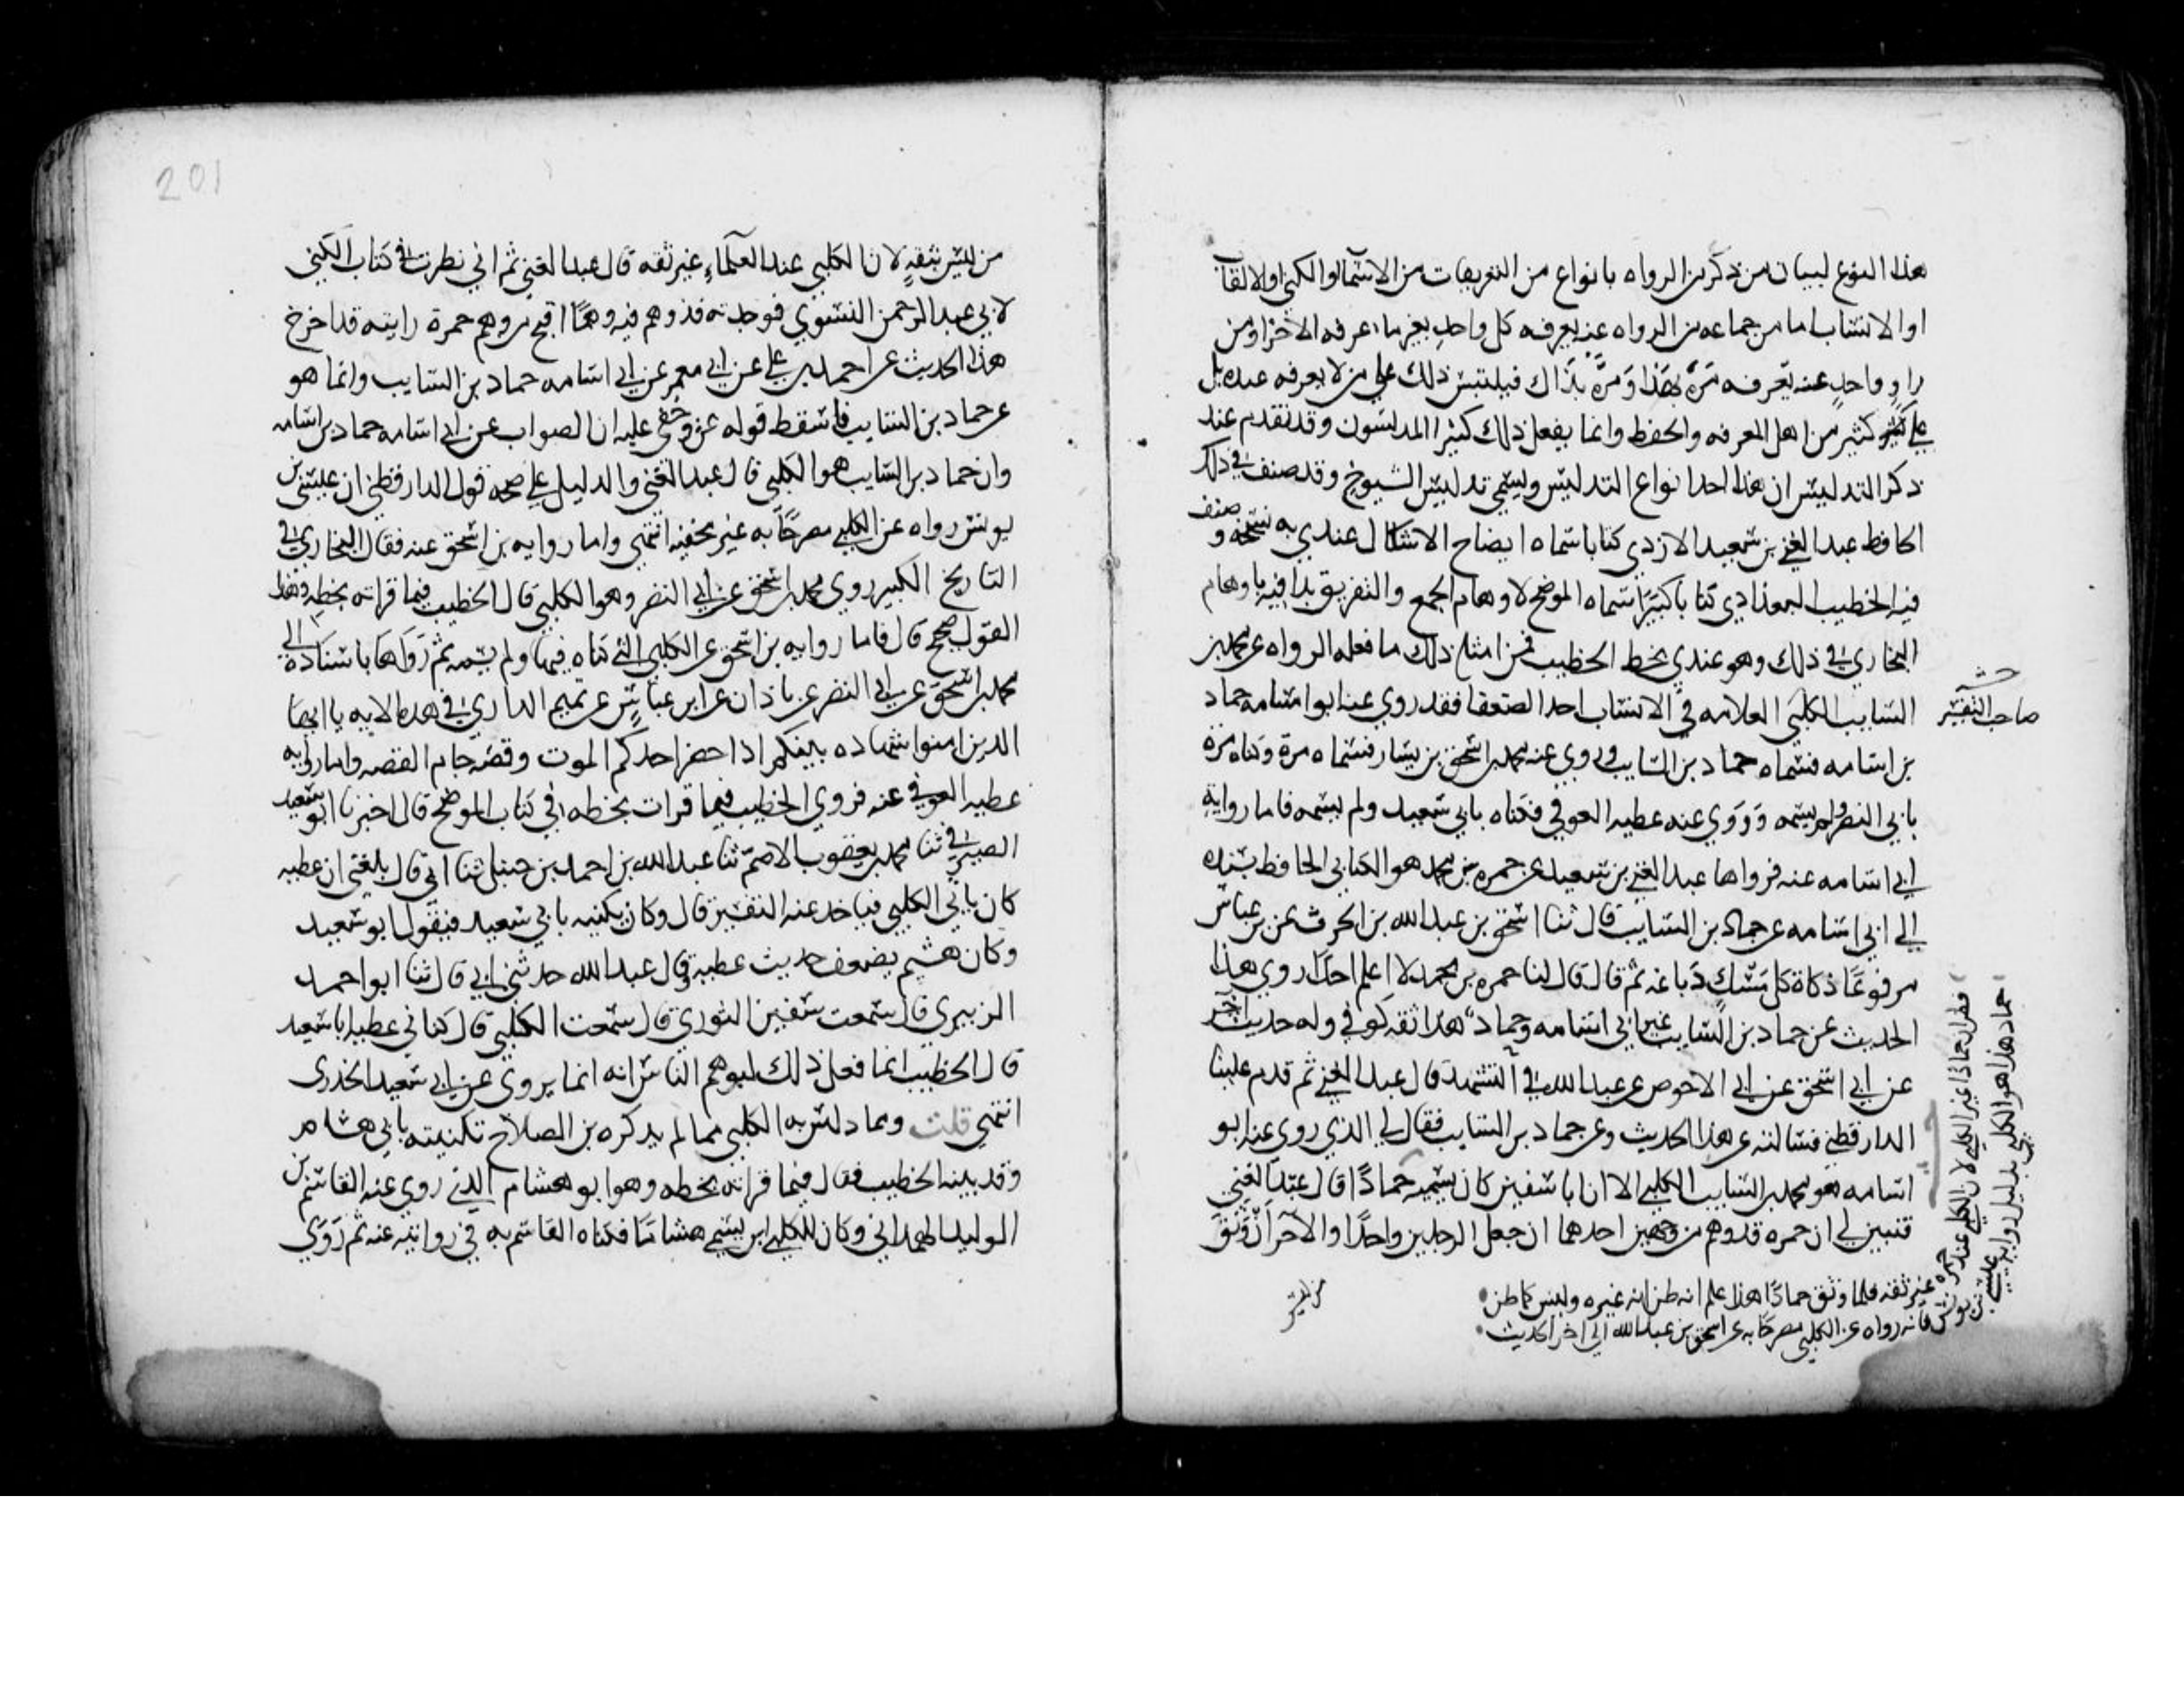 هذا النوع لبيان من ذكر من الرواه بانواع من التعريفات من الاسما والكنى او الالقاب
او الانساب اما من جماعه من الرواه عنه يعرفه كل واحد بغير ما عرفه الاخر او من
راو واحد عنه يعرفه مرة بهذا ومرة بذاك فيلتبس ذلك على من لا يعرفه عنده بل
على كثير من اهل المعرفه والحفظ وانما يفعل ذلك كثيرا المدلسون وقد تقدم عند
ذكر التدليس ان هذا احد انواع التدليس ويسمى تدليس الشيوخ وقد صنف في ذلك
الحافظ عبد الغني بن سعيد الازدي كتابا سماه ايضاح الاشكال عندي به نسخه وصنف
فيه الخطيب البغداذي كتابا كبيرا سماه الموضح لاوهام الجمع والتفريق بدا فيه باوهام
البخاري في ذلك وهو عندي بخط الخطيب فمن امثله ذلك ما فعله الرواه عن محمد بن
السايب الكلبي العلامه في الانساب احد الضعفا فقد روي عنه ابو اسامه حماد
صاحب التفسير
بن اسامه فسماه حماد بن السايب وروي عنه محمد بن اسحق بن يسار فسماه مرة وكناه مرة
بابي النضر ولم يسمه وروي عنه عطيه العوفي فكناه بابي سعيد ولم يسمه فاما رواية
ابي اسامه عنه فرواها عبد الغني بن سعيد عن حمزه بن محمد هو الكناني الحافظ بسنده
الي ابي اسامه عن حماد بن السايب قال ثنا اسحق بن عبد الله بن الحرث عن بن عباس
مرفوعا ذكاة كل مسك دباغه ثم قال قال لنا حمزه بن محمد لا اعلم احدا روي هذا
الحديث عن حماد بن السايب غير ابي اسامه وحماد هذا ثقه كوفي وله حديث اخر
عن ابي اسحق عن ابي الاحوص عن عبد الله في التشهد قال عبد الغني ثم قدم علينا
الدارقطني فسالته عن هذا الحديث وعن حماد بن السايب فقال لي الذي روي عنه ابو
اسامه هو محمد بن السايب الكلبي الا ان ابا سفين كان يسميه حمادا قال عبد الغني
فتبين لي ان حمزه قد وهم من وجهين احدهما ان جعل الرجلين واحدا والاخر ان وثق
من ليس
حماد هذا هو الكلبي بدليل رواية عيسى
بن يونس فانه رواه عن الكلبي مصرحا به عن اسحق بن عبد الله الى اخر الحديث
حمادا غير الكلبي لان الكلبي عند حمزه
غير ثقه فلما وثق حمادا هذا علم انه ظن انه غيره وليس كما ظن
201
من ليس بثقة لان الكلبي عند العلماء غير ثقه قال عبد الغني ثم اني نظرت في كتاب الكنى
لابي عبد الرحمن النسوي فوجدته قد وهم فيه وهما اقبح من وهم حمزة رايته قد اخرج
هذا الحديث عن احمد بن علي عن ابي معمر عن ابي اسامه حماد بن السايب وانما هو
عن حماد بن السايب فاسقط قوله عن وخفي عليه ان الصواب عن ابي اسامه حماد بن اسامه
وان حماد بن السايب هو الكلبي قال عبد الغني والدليل على صحه قول الدارقطني ان عيسى بن
يونس رواه عن الكلبي مصرحا به غير مخفيه انتهى واما روايه بن اسحق عنه فقال البخاري في
التاريخ الكبير روي محمد بن اسحق عن ابي النضر وهو الكلبي قال الخطيب فيما قراته بخطه وهذا
القول صحيح قال فاما روايه بن اسحق عن الكلبي التي كناه فيها ولم يسمه ثم رواها باسناده الي
محمد بن اسحق عن ابي النضر عن باذان عن ابن عباس عن تميم الداري في هذه الايه يا ايها
الذين امنوا شهاده بينكم اذا حضر احدكم الموت وقصه جام القصه واما رواية
عطيه العوفي عنه فروي الخطيب فيما قرات بخطه في كتاب الموضح قال اخبرنا ابو سعيد
الصيرفي ثنا محمد بن يعقوب الاصم ثنا عبد الله بن احمد بن حنبل ثنا ابي قال بلغني ان عطيه
كان ياتي الكلبي فياخذ عنه التفسير قال وكان يكنيه بابي سعيد فيقول ابو سعيد
وكان هشيم يضعف حديث عطية قال عبد الله حدثني ابي قال ثنا ابو احمد
الزبيري قال سمعت سفين الثوري قال سمعت الكلبي قال كناني عطيه ابا سعيد
قال الخطيب انما فعل ذلك ليوهم الناس انه انما يروي عن ابي سعيد الخدري
انتهى قلت ومما دلس به الكلبي مما لم يذكره بن الصلاح تكنيته بابي هشام
وقد بينه الخطيب فقال فيما قراته بخطه وهو ابو هشام الذي روي عنه القاسم بن
الوليد الهمداني وكان للكلبي ابن يسمى هشاما فكناه القاسم به في روايته عنه ثم روي